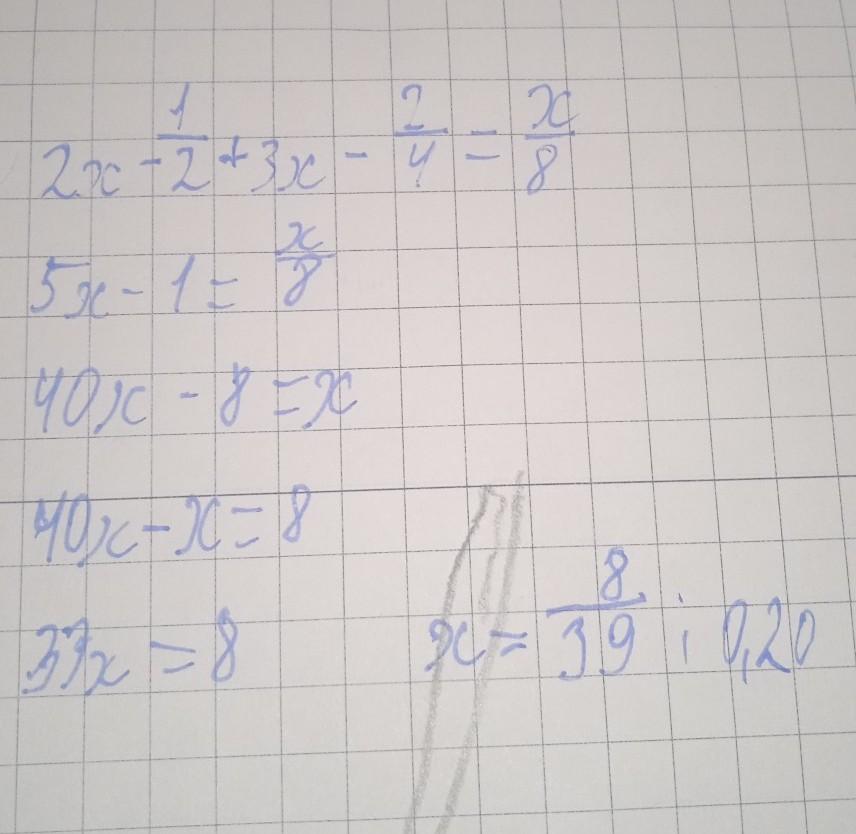 2x - 1/2 + 3x - 2/4 = x/8
5x - 1 = x/8
40x - 8 = x
40x - x = 8
33x = 8
x = 8/39 ; 0,20